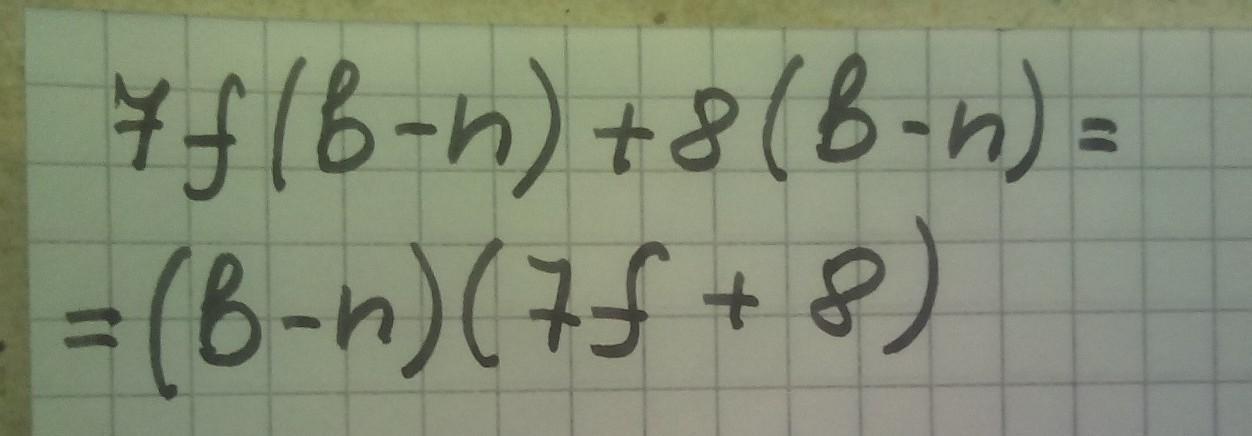 7f(b-n)+8(b-n)=
=(b-n)(7f+8)